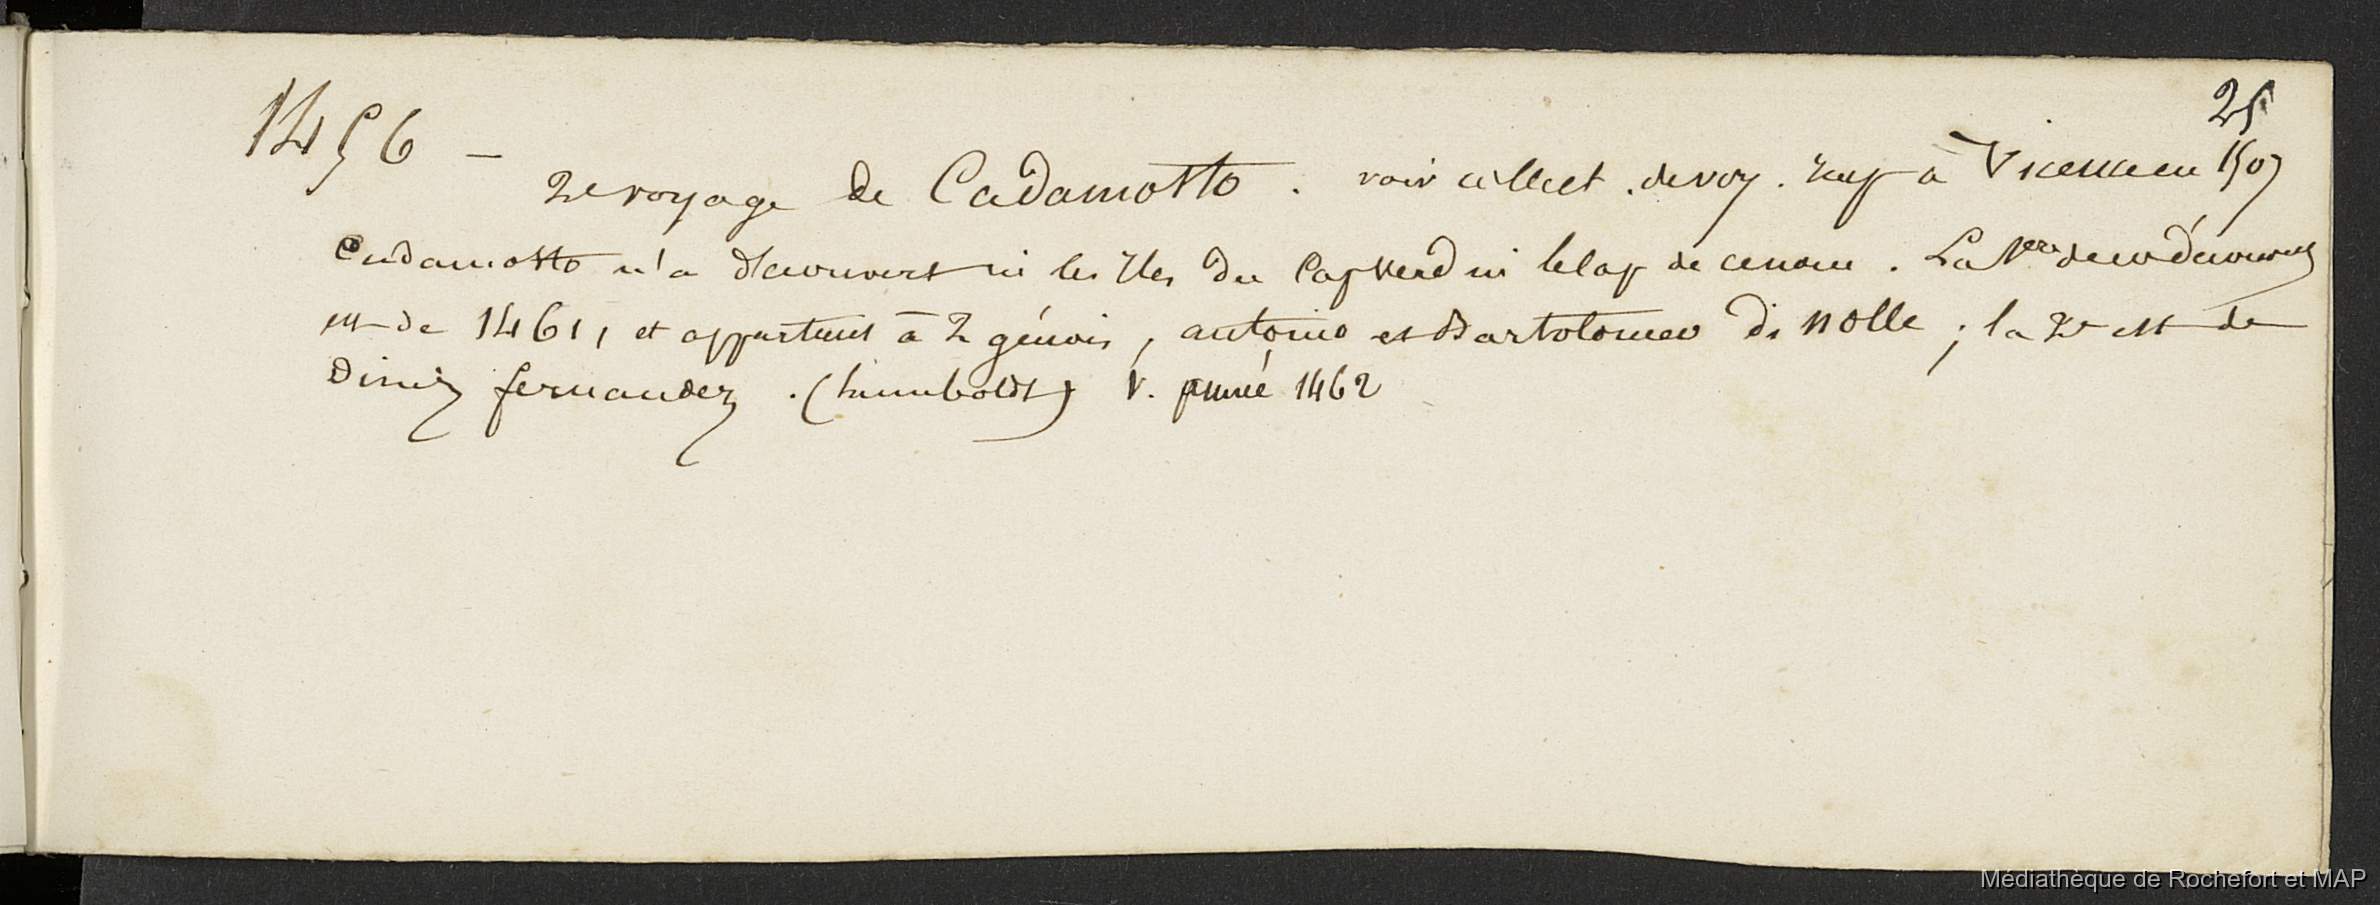 25
1456 —
2e voyage de Cadamosto . voir collect . de voy . imp à Vicence en 1507
Cadamosto n'a découvert ni les Iles du Cap Verd ni le Cap de ce nom . La 1ere de ces découvertes
est de 1461, et appartient à 2 génois, antonio et Bartolomeo di Nolle ; la 2e est de
Diniz fernandez . (humboldt) V. année 1462
Médiathèque de Rochefort et MAP